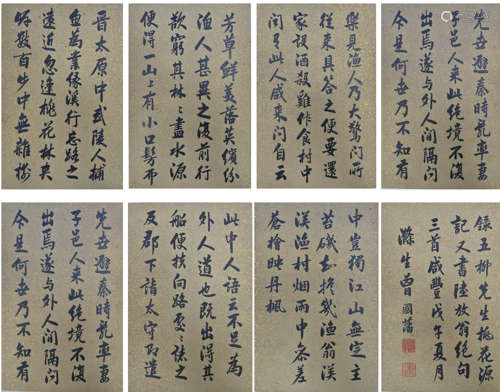 晉太原中武陵人捕
魚為業緣溪行忘路之
遠近忽逢桃花林夾
岸數百步中無雜樹
芳草鮮美落英繽紛
漁人甚異之復前行
欲窮其林〻盡水源
便得一山上有小口髣
樂見漁人乃大驚問所
從來具答之便要還
家設酒殺雞作食村中
聞有此人咸來問自云
先世避秦時亂率妻
子邑人來此絕境不復
出焉遂與外人間隔問
今是何世乃不知有
先世避秦時亂率妻
子邑人來此絕境不復
出焉遂與外人間隔問
今是何世乃不知有
此中人語云不足為
外人道也既出得其
船便扶向路處〻誌之
及郡下詣太守即遣
中豈獨江山無定主
苔磯換幾漁翁溪
漁村烟雨中參差
蒼檜映丹楓
錄五柳先生桃花源
記又書陸放翁絕句
三首咸豐戊午夏月
滌生曾國藩